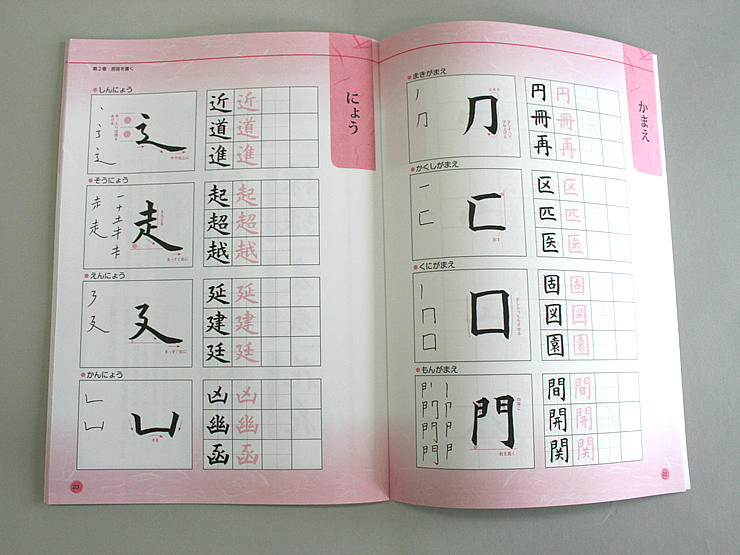 かまえ
まきがまえ
冂
円 円
冊 冊
再 再
かくしがまえ
匸
区 区
匹 匹
医 医
くにがまえ
囗
固 固
図 図
園 園
もんがまえ
門
間 間
開 開
関 関
22
第2章:部首を書く
にょう
しんにょう
辶
近 近
道 道
進 進
そうにょう
走
起 起
超 超
越 越
えんにょう
廴
まっすぐ右に
延 延
建 建
廷 廷
かんにょう
凵
凶 凶
幽 幽
函 函
23